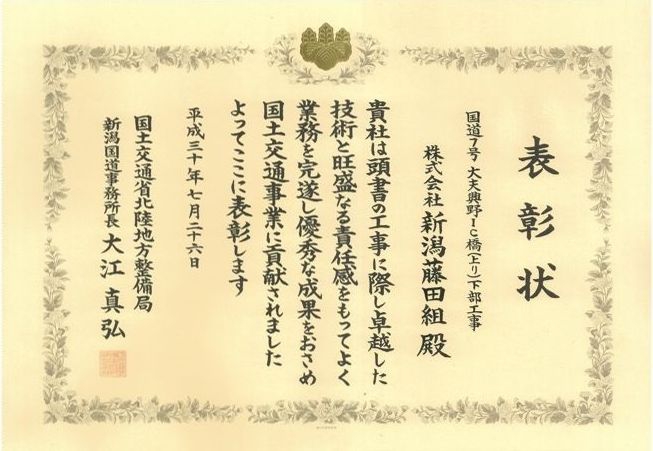 表彰状
国道7号 大夫興野IC橋(上り)下部工事
株式会社 新潟藤田組 殿
貴社は頭書の工事に際し卓越した
技術と旺盛なる責任感をもってよく
業務を完遂し優秀な成果をおさめ
国土交通事業に貢献されました
よってここに表彰します
平成三十年七月二十六日
国土交通省北陸地方整備局
新潟国道事務所長 大江真弘